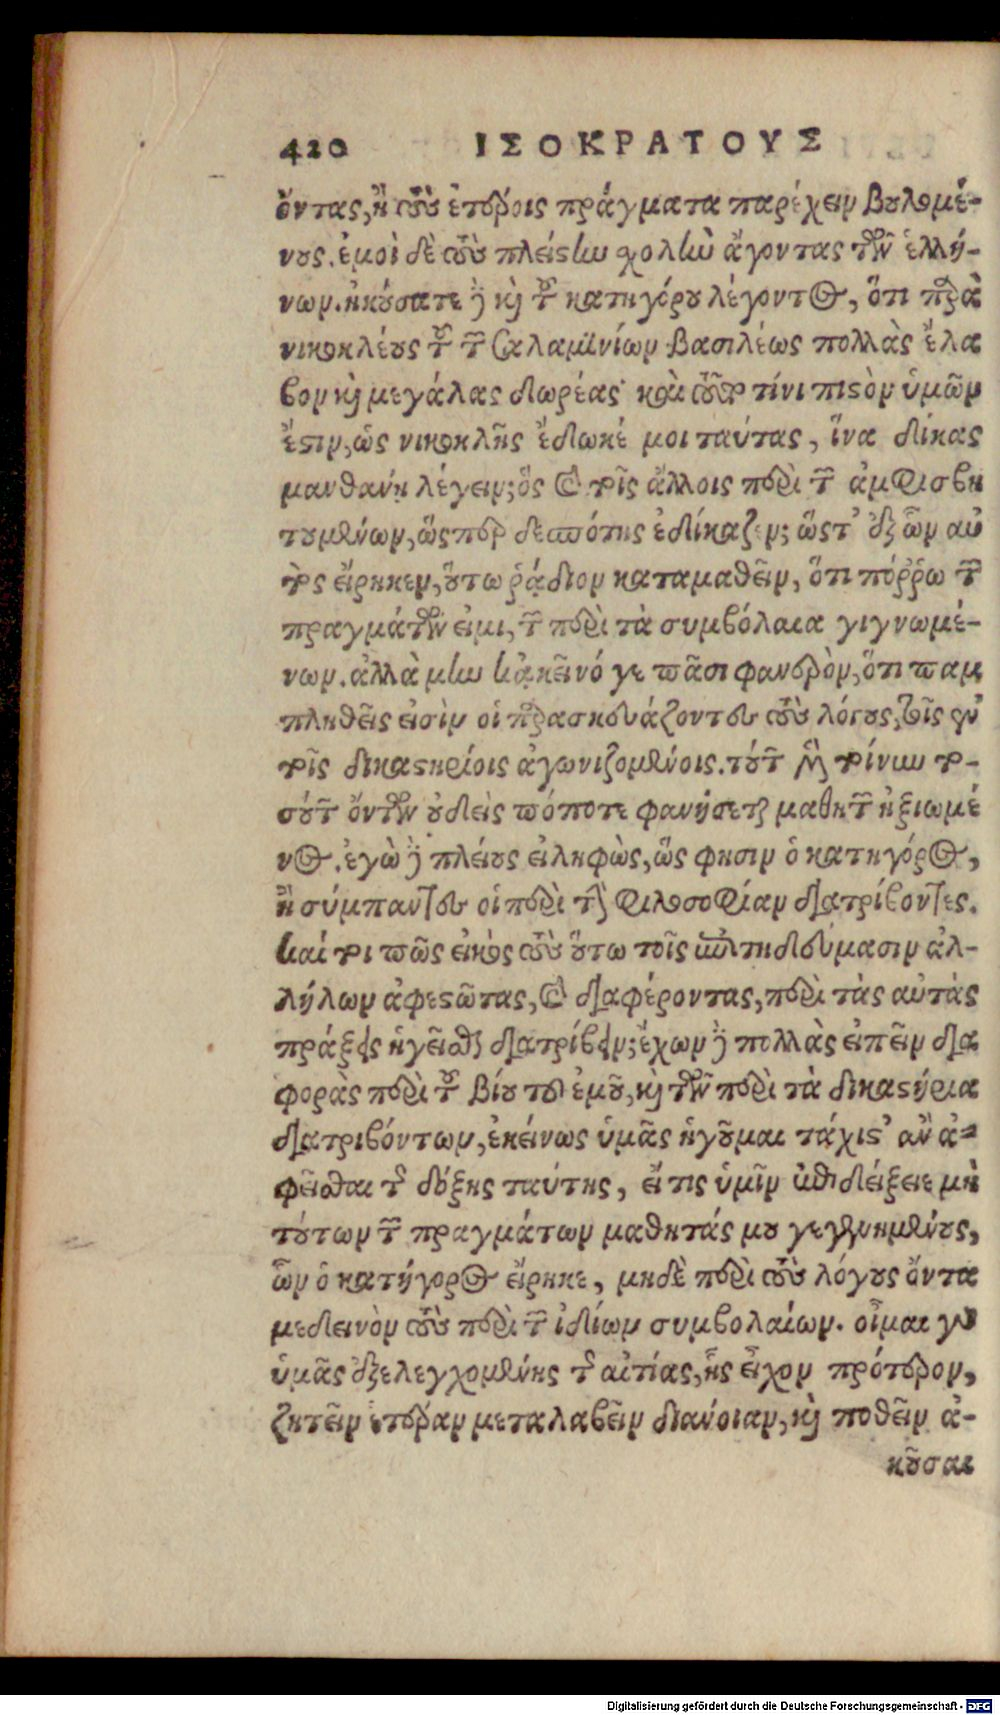 420 ΙΣΟΚΡΑΤΟΥΣ
ὄντας, ἢ τοὺς ἑτέροις πράγματα παρέχειν βουλομέ-
νους. ἐμοὶ δὲ τοὺς πλείστην σχολὴν ἄγοντας τῶν ἑλλή-
νων. ἠκούσατε δὲ καὶ τοῦ κατηγόρου λέγοντος, ὅτι παρὰ
νικοκλέους τοῦ τῶν Σαλαμινίων βασιλέως πολλὰς ἔλα
βον καὶ μεγάλας δωρέας· καὶ τοῦτο τίνι πιστὸν ὑμῶν
ἔστιν, ὡς νικοκλῆς ἔδωκέ μοι ταύτας, ἵνα δίκας
μανθάνῃ λέγειν; ὃς καὶ τοῖς ἄλλοις περὶ τῶν ἀμφισβη
τουμένων, ὥσπερ δεσπότης ἐδίκαζεν; ὥστ' ἐξ ὧν αὐ
τὸς εἴρηκεν, οὕτω ῥᾴδιον καταμαθεῖν, ὅτι πόῤῥω τῶν
πραγμάτων εἰμι, τῶν περὶ τὰ συμβόλαια γιγνωμέ-
νων. ἀλλὰ μὴν κἀκεῖνό γε πᾶσι φανερὸν, ὅτι παμ
πληθεῖς εἰσὶν οἱ παρασκευάζοντες τοὺς λόγους, τοῖς ἐν
τοῖς δικαστηρίοις ἀγωνιζομένοις. τούτων μὲν τοίνυν το-
σούτων ὄντων οὐδεὶς πόποτε φανήσεται μαθητῶν ἠξιωμέ
νος. ἐγὼ δὲ πλείους εἰληφὼς, ὥς φησιν ὁ κατήγορος,
ἢ σύμπαντες οἱ περὶ τὴν φιλοσοφίαν διατρίβοντες.
καί τοι πῶς εἰκὸς τοὺς οὕτω τοῖς ἐπιτηδεύμασιν ἀλ-
λήλων ἀφεστῶτας, καὶ διαφέροντας, περὶ τὰς αὐτὰς
πράξεις ἡγεῖσθαι διατρίβειν; ἔχων δὲ πολλὰς εἰπεῖν δια
φορὰς περὶ τοῦ βίου τοῦ ἐμοῦ, καὶ τῶν περὶ τὰ δικαστήρια
διατριβόντων, ἐκείνως ὑμᾶς ἡγοῦμαι τάχιστ' ἂν ἀ-
φεῖσθαι τῆς δόξης ταύτης, εἴ τις ὑμῖν ἐπιδείξειε μὴ
τούτων τῶν πραγμάτων μαθητάς μου γεγενημένους,
ὧν ὁ κατήγορος εἴρηκε, μηδὲ περὶ τοὺς λόγους ὄντα
με δεινὸν τοὺς περὶ τῶν ἰδίων συμβολαίων. οἶμαι γὰρ
ὑμᾶς ἐξελεγχομένης τῆς αἰτίας, ἧς εἶχον πρότερον,
ζητεῖν ἑτέραν μεταλαβεῖν διάνοιαν, καὶ ποθεῖν ἀ-
κοῦσαι
Digitalisierung gefördert durch die Deutsche Forschungsgemeinschaft - DFG